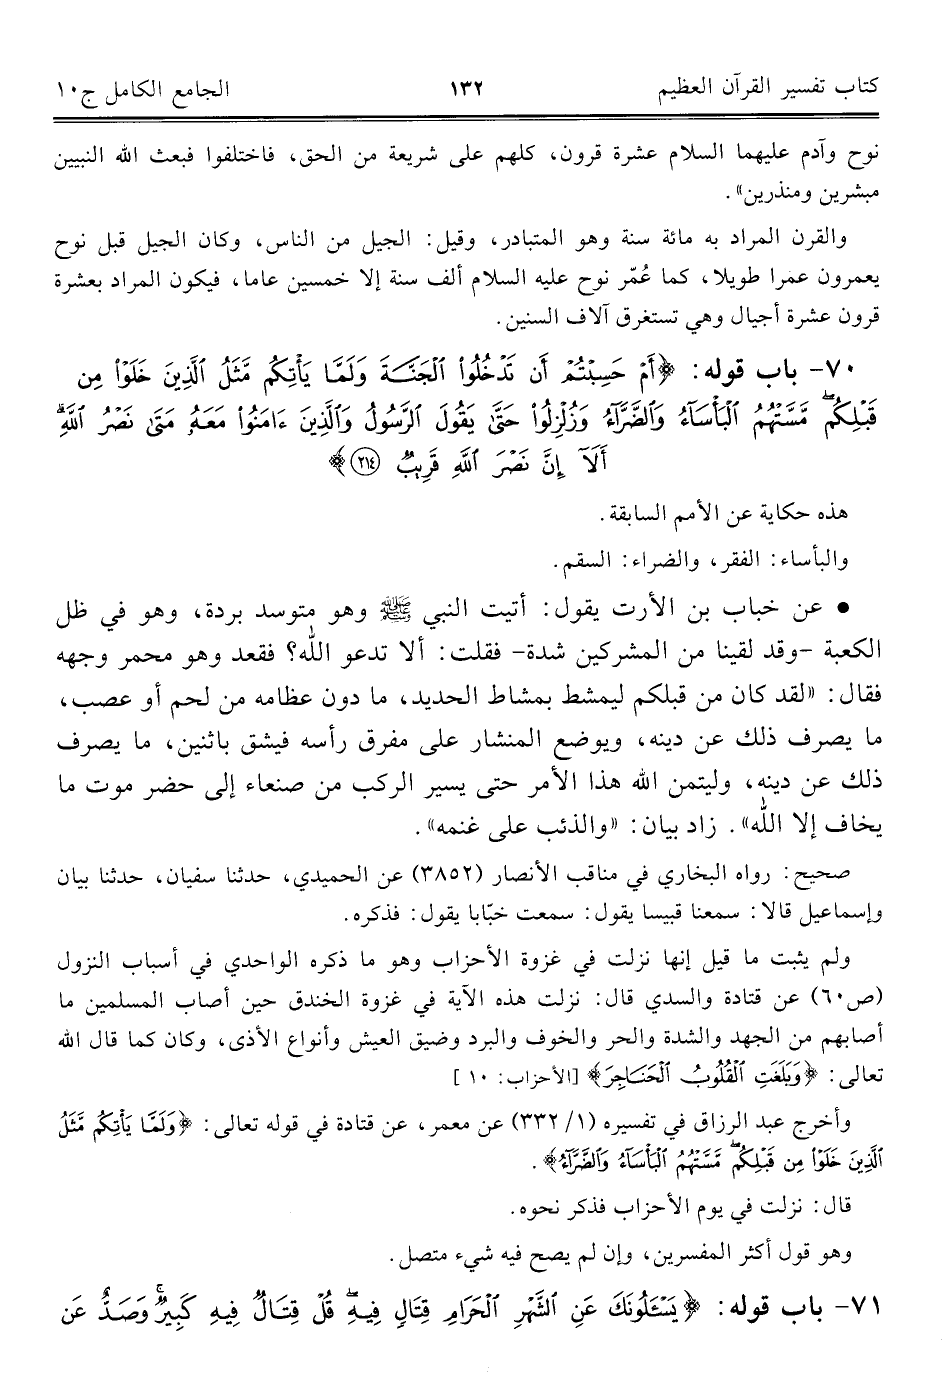 كتاب تفسير القرآن العظيم ١٣٢ الجامع الكامل ج١٠
نوح وآدم عليهما السلام عشرة قرون، كلهم على شريعة من الحق، فاختلفوا فبعث الله النبيين
مبشرين ومنذرين».
والقرن المراد به مائة سنة وهو المتبادر، وقيل: الجيل من الناس، وكان الجيل قبل نوح
يعمرون عمرا طويلا، كما عُمّر نوح عليه السلام ألف سنة إلا خمسين عاما، فيكون المراد بعشرة
قرون عشرة أجيال وهي تستغرق آلاف السنين.
٧٠- باب قوله: ﴿أَمْ حَسِبْتُمْ أَن تَدْخُلُوا۟ ٱلْجَنَّةَ وَلَمَّا يَأْتِكُم مَّثَلُ ٱلَّذِينَ خَلَوْا۟ مِن
قَبْلِكُم ۖ مَّسَّتْهُمُ ٱلْبَأْسَآءُ وَٱلضَّرَّآءُ وَزُلْزِلُوا۟ حَتَّىٰ يَقُولَ ٱلرَّسُولُ وَٱلَّذِينَ ءَامَنُوا۟ مَعَهُۥ مَتَىٰ نَصْرُ ٱللَّهِ ۗ
أَلَآ إِنَّ نَصْرَ ٱللَّهِ قَرِيبٌ ٢١٤﴾
هذه حكاية عن الأمم السابقة.
والبأساء: الفقر، والضراء: السقم.
• عن خباب بن الأرت يقول: أتيت النبي ﷺ وهو متوسد بردة، وهو في ظل
الكعبة -وقد لقينا من المشركين شدة- فقلت: ألا تدعو الله؟ فقعد وهو محمر وجهه
فقال: «لقد كان من قبلكم ليمشط بمشاط الحديد، ما دون عظامه من لحم أو عصب،
ما يصرف ذلك عن دينه، ويوضع المنشار على مفرق رأسه فيشق باثنين، ما يصرف
ذلك عن دينه، وليتمن الله هذا الأمر حتى يسير الركب من صنعاء إلى حضر موت ما
يخاف إلا الله». زاد بيان: «والذئب على غنمه».
صحيح: رواه البخاري في مناقب الأنصار (٣٨٥٢) عن الحميدي، حدثنا سفيان، حدثنا بيان
وإسماعيل قالا: سمعنا قبيسا يقول: سمعت خبّابا يقول: فذكره.
ولم يثبت ما قيل إنها نزلت في غزوة الأحزاب وهو ما ذكره الواحدي في أسباب النزول
(ص٦٠) عن قتادة والسدي قال: نزلت هذه الآية في غزوة الخندق حين أصاب المسلمين ما
أصابهم من الجهد والشدة والحر والخوف والبرد وضيق العيش وأنواع الأذى، وكان كما قال الله
تعالى: ﴿وَبَلَغَتِ ٱلْقُلُوبُ ٱلْحَنَاجِرَ﴾ [الأحزاب: ١٠]
وأخرج عبد الرزاق في تفسيره (١/ ٣٣٢) عن معمر، عن قتادة في قوله تعالى: ﴿وَلَمَّا يَأْتِكُم مَّثَلُ
ٱلَّذِينَ خَلَوْا۟ مِن قَبْلِكُم ۖ مَّسَّتْهُمُ ٱلْبَأْسَآءُ وَٱلضَّرَّآءُ﴾.
قال: نزلت في يوم الأحزاب فذكر نحوه.
وهو قول أكثر المفسرين، وإن لم يصح فيه شيء متصل.
٧١- باب قوله: ﴿يَسْـَٔلُونَكَ عَنِ ٱلشَّهْرِ ٱلْحَرَامِ قِتَالٍ فِيهِ ۖ قُلْ قِتَالٌ فِيهِ كَبِيرٌ ۚ وَصَدٌّ عَن